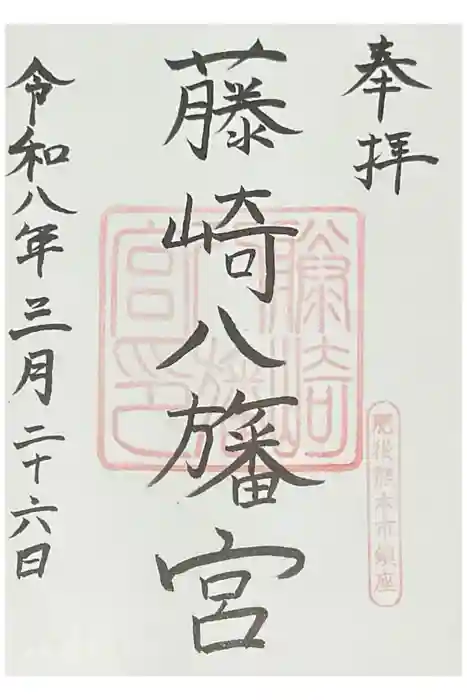 奉拝
肥後熊本市鎮座
藤崎八旛宮
藤崎八旛宮印
令和八年三月二十六日